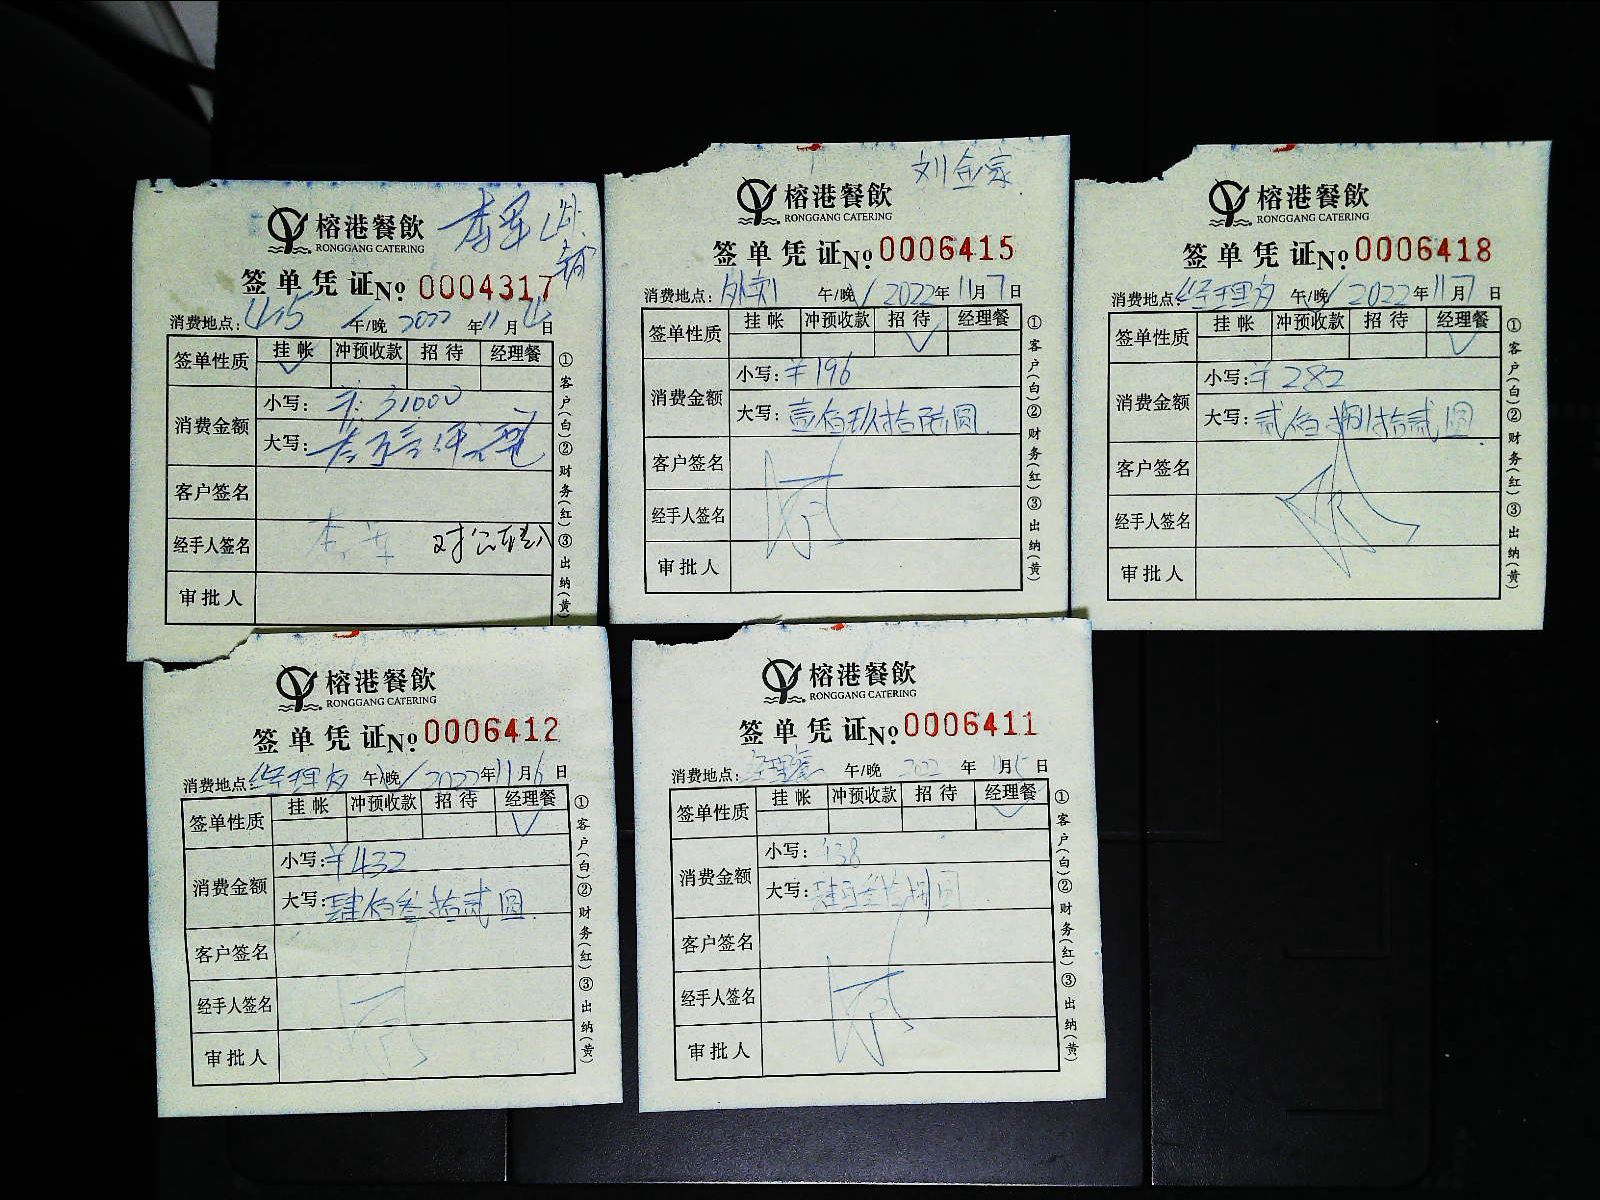 李军
榕港餐飲
RONGGANG CATERING
签单凭证№ 0004317
消费地点: 415 午/晚 2022年11月4日
签单性质 挂帐 冲预收款 招待 经理餐
消费金额
小写: ¥: 31000
大写:
客户签名
经手人签名 对公转入
审批人
①客户(白)②财务(红)③出纳(黄)
刘金家
榕港餐飲
RONGGANG CATERING
签单凭证№ 0006415
消费地点: 外卖 午/晚 2022年11月7日
签单性质 挂帐 冲预收款 招待 经理餐
消费金额
小写: ¥196
大写: 壹佰玖拾陆圆.
客户签名
经手人签名
审批人
①客户(白)②财务(红)③出纳(黄)
榕港餐飲
RONGGANG CATERING
签单凭证№ 0006418
消费地点: 经理 午/晚 2022年11月7日
签单性质 挂帐 冲预收款 招待 经理餐
消费金额
小写: ¥282
大写: 贰佰捌拾贰圆.
客户签名
经手人签名
审批人
①客户(白)②财务(红)③出纳(黄)
榕港餐飲
RONGGANG CATERING
签单凭证№ 0006412
消费地点: 经理 午/晚 2022年11月6日
签单性质 挂帐 冲预收款 招待 经理餐
消费金额
小写: ¥432
大写: 肆佰叁拾贰圆.
客户签名
经手人签名
审批人
①客户(白)②财务(红)③出纳(黄)
榕港餐飲
RONGGANG CATERING
签单凭证№ 0006411
消费地点: 经理餐 午/晚 2022年11月5日
签单性质 挂帐 冲预收款 招待 经理餐
消费金额
小写:
大写: 肆佰叁拾捌圆
客户签名
经手人签名
审批人
①客户(白)②财务(红)③出纳(黄)